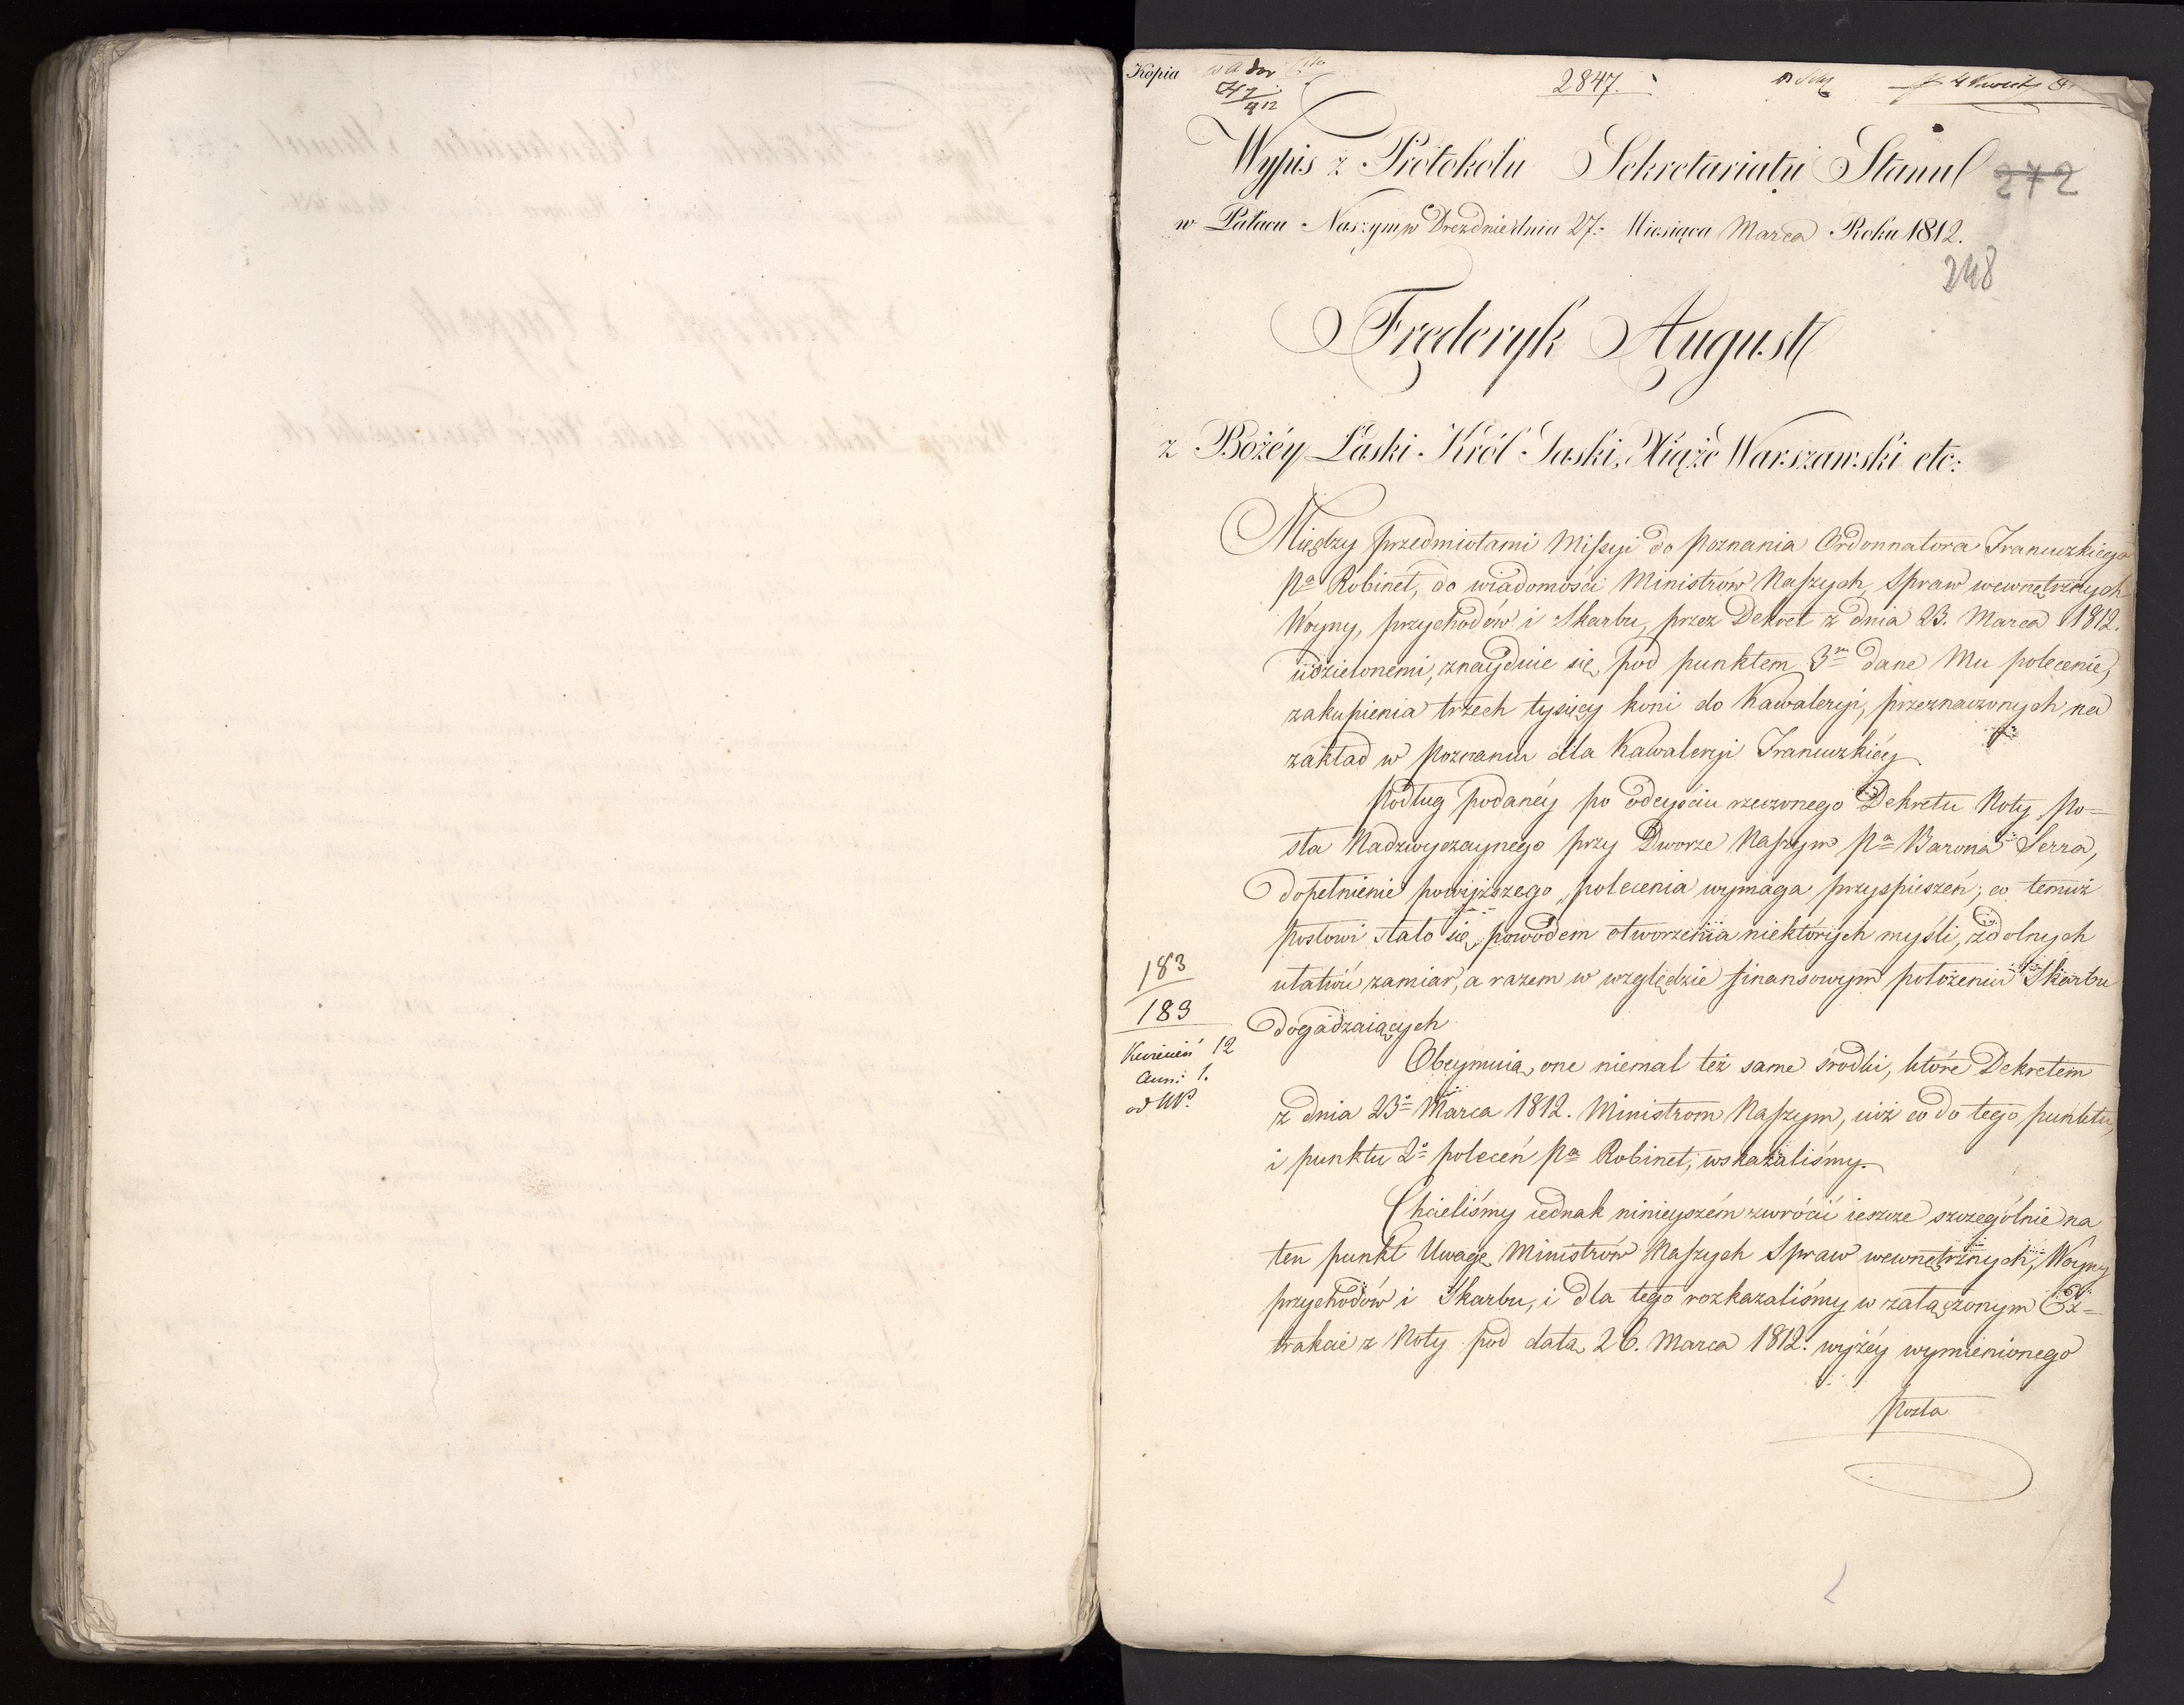 Kopia
2847.
Wypis z Protokołu Sekretariatu Stanu
272
w Pałacu Naszym w Dreźdnie dnia 27. Miesiąca Marca Roku 1812.
248
Fryderyk August
z Bożéy Łaski Król Saski, Xiąże Warszawski etc:
Między przedmiotami Missyi do Poznania Ordonnatora Francuzkiego
Pa Robinet, do wiadomości Ministrów Naszych, Spraw wewnętrznych
Woyny, przychodów i Skarbu, przez Dekret z dnia 23. Marca 1812.
udzielonemi, znayduie się pod punktem 3m dane Mu polecenie,
zakupienia trzech tysięcy koni do Kawaleryi, przeznaczonych na
zakład w Poznaniu dla Kawaleryi Francuzkiéy.
Podług podanéy po odeyściu rzeczonego Dekretu Noty Po-
sła Nadzwyczaynego przy Dworze Naszym Pa Barona Serra,
dopełnienie powyższego polecenia wymaga przyspieszeń; co temuż
Posłowi stało się powodem otworzenia niektórych myśli, zdolnych
ułatwić zamiar, a razem w względzie finansowym położeniu Skarbu
dogadzaiących.
183
183
Kwiecień 12
Anni 1.
Obeymuią one niemal też same środki, które Dekretem
z dnia 23o Marca 1812. Ministrom Naszym, iuż co do tego punktu,
i punktu 2o poleceń Pa Robinet, wskazaliśmy.
Chcieliśmy iednak ninieyszém zwrócić ieszcze szczególnie na
ten punkt Uwagę Ministrów Naszych Spraw wewnętrznych, Woyny
przychodów i Skarbu, i dla tego rozkazaliśmy w załączonym Ex-
trakcie z Noty pod datą 26. Marca 1812. wyżéy wymienionego
Posła